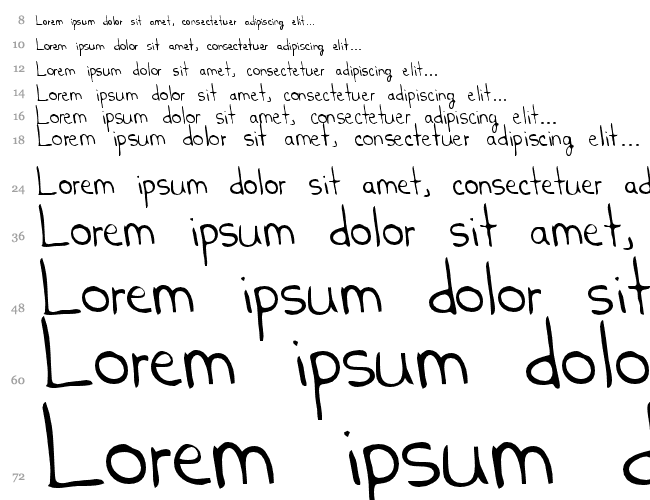 8 Lorem ipsum dolor sit amet, consectetuer adipiscing elit...
10 Lorem ipsum dolor sit amet, consectetuer adipiscing elit...
12 Lorem ipsum dolor sit amet, consectetuer adipiscing elit...
14 Lorem ipsum dolor sit amet, consectetuer adipiscing elit...
16 Lorem ipsum dolor sit amet, consectetuer adipiscing elit...
18 Lorem ipsum dolor sit amet, consectetuer adipiscing elit...
24 Lorem ipsum dolor sit amet, consectetuer ad
36 Lorem ipsum dolor sit amet,
48 Lorem ipsum dolor sit
60 Lorem ipsum dolo
72 Lorem ipsum d